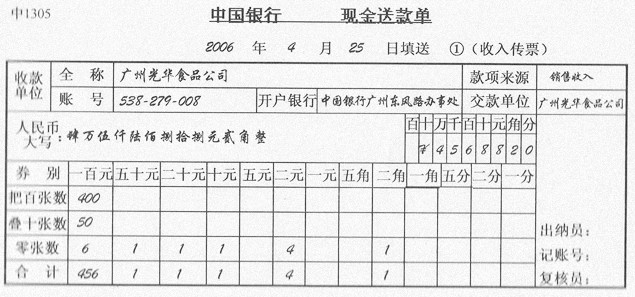 中1305
中国银行 现金送款单
2006 年 4 月 25 日填送 ①(收入传票)
收款单位 全 称 广州光华食品公司 款项来源 销售收入
账 号 538-279-008 开户银行 中国银行广州东风路办事处 交款单位 广州光华食品公司
人民币大写: 肆万伍仟陆佰捌拾捌元贰角整 百 十 万 千 百 十 元 角 分
¥ 4 5 6 8 8 2 0
券 别 一百元 五十元 二十元 十元 五元 二元 一元 五角 二角 一角 五分 二分 一分
把百张数 400
叠十张数 50 出纳员:
零张数 6 1 1 1 4 1 记账号:
合 计 456 1 1 1 4 1 复核员: